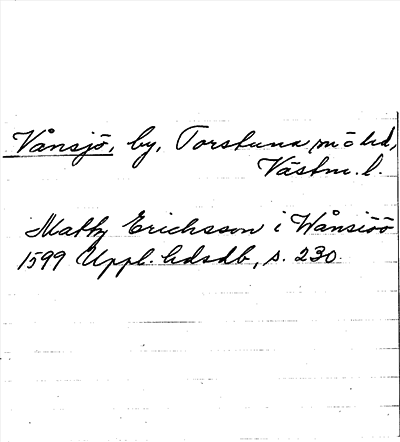 Vånsjö, by, Torstuna sn o hd,
Västm. l.
Matts Erichsson i Wånsiöö
1599 Uppl. hdsdb, s. 230.